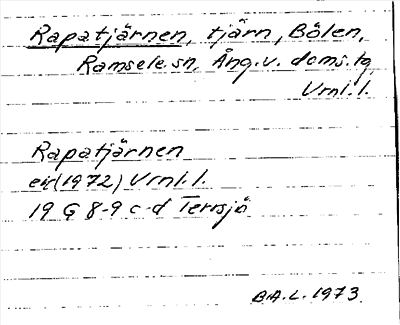 Rapatjärnen, tjärn, Bölen,
Ramsele sn, Ång. v. doms. tg
Vrnl. l.
Rapatjärnen
ek (1972) Vrnl. l.
19 G 8-9 c-d Terrsjö
B.A.L. 1973